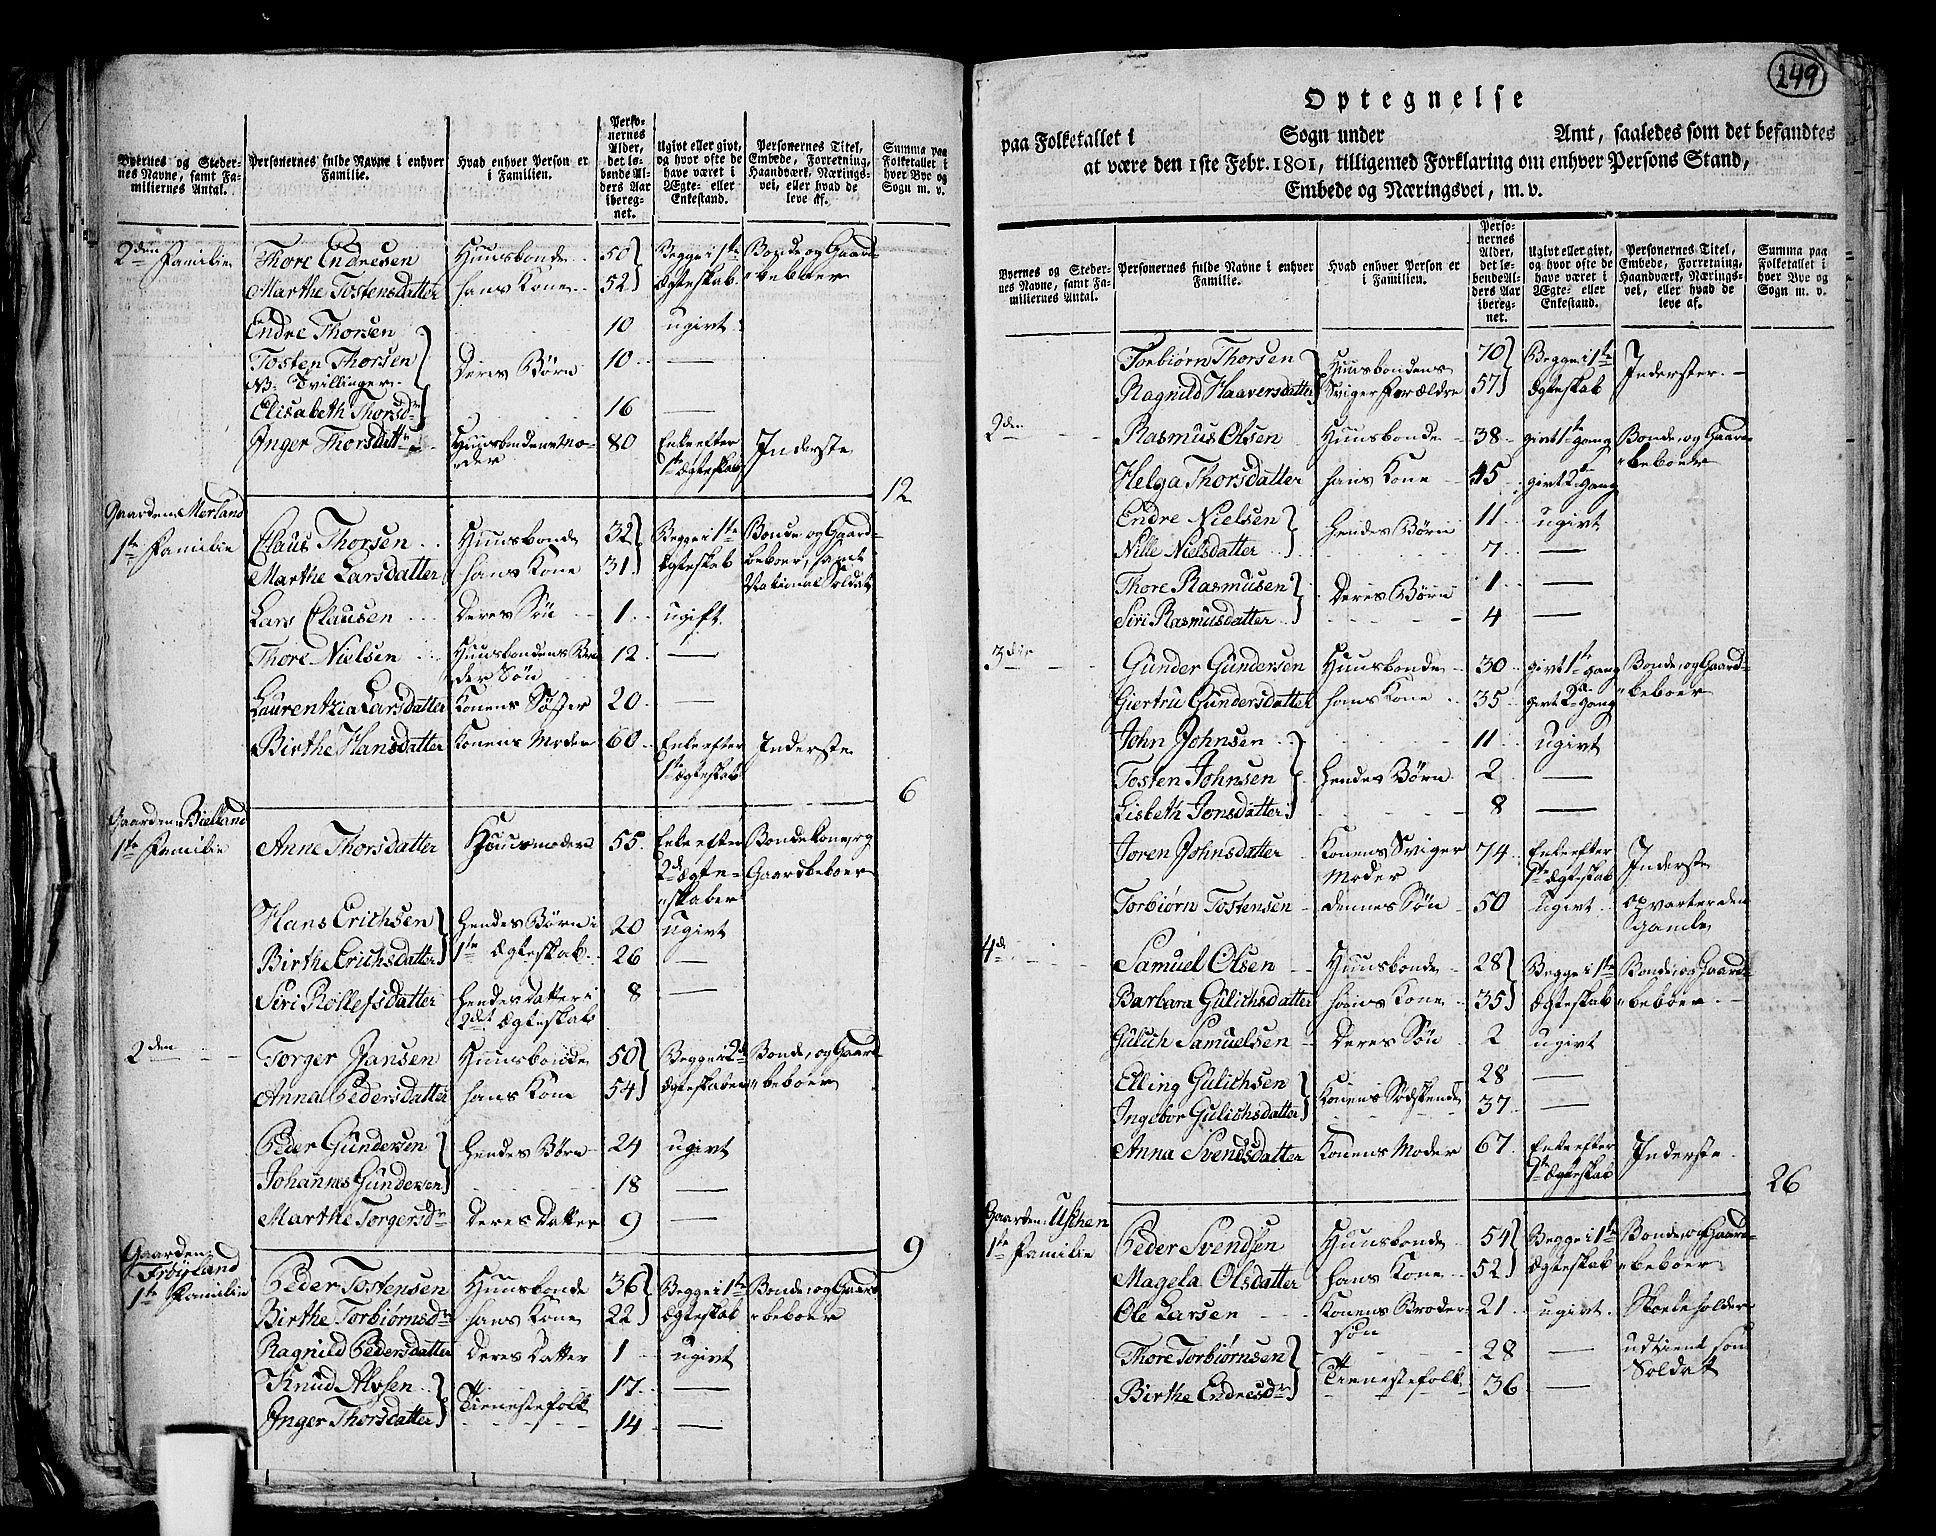 Byernes og Steder- Personernes fulde Navne i enhver Hvad enhver Person er Perso- Ugivt eller givt, Personernes Titel, Summa paa
nes Navne, samt Fa- Familie. i Familien. nernes og hvor ofte de Embede, Forretning, Folketallet i
miliernes Antal. Alder, have været i Haandværk, Nærings- hver Bye og
det lø- Ægte- eller vei, eller hvad de Sogn m. v.
bende Al- Enkestand. leve af.
ders Aar
ibereg-
net.
2den Familie Thore Endresen Huusbonde 50 Begge i 1ste Bonde og Gaard-
Marthe Tostensdatter hans Kone 52 Ægteskab beboer
Endre Thorsen 10 ugivt
Tosten Thorsen Deres Børn 10 —
NB. Tvillinger
Elisabeth Thorsdr 16 —
Anger Thorsdattr Huusbondens Mo- 80 Enke efter Inderste
der 1ste Ægteskab
12
Gaarden Merland
1te Familie Claus Thorsen Huusbonde 32 Begge i 1te Bonde og Gaard-
Marthe Larsdatter hans Kone 31 Ægteskab beboer, samt
National Soldat
Lars Clausen Deres Søn 1 ugift
Thore Nielsen Huusbondens Bro 12 —
der Søn
Laurentzia Larsdatter Konens Søster 20 —
Birthe Hansdatter Konens Moder 60 Enke efter Inderste
1te Ægteskab
6
Gaarden Bielland
1te Familie Anne Thorsdatter Huusmoder 55 Enke efter Bondekone, og
2det Ægte- Gaardbeboer
skaber
Hans Erichsen Hendes Børn i 20 ugivt
Birthe Erichsdatter 1te Ægteskab 26 —
Siri Rollefsdatter Hendes Datter i 8 —
2det Ægteskab
2den Torger Jansen Huusbonde 50 Begge i 2det Bonde, og Gaard-
Anna Pedersdatter hans Kone 54 Ægteskaber beboer
Peder Gundersen Hendes Børn 24 ugivt
Johannes Gundersen 18 —
Marthe Torgersdr Deres Datter 9 —
9
Gaarden
Frøyland
1te Familie Peder Tostensen Huusbonde 36 Begge i 1te Bonde, og Gaard
Birthe Torbiørnsdr hans Kone 22 Ægteskab beboer
Ragnild Pedersdatter Deres Datter 1 ugivt
Knud Alvsen Tienestefolk 17 —
Anger Thorsdatter 14 —
249
Optegnelse
paa Folketallet i Sogn under Amt, saaledes som det befandtes
at være den 1ste Febr. 1801, tilligemed Forklaring om enhver Persons Stand,
Embede og Næringsvei, m. v.
Byernes og Steder- Personernes fulde Navne i enhver Hvad enhver Person er Perso- Ugivt eller givt, Personernes Titel, Summa paa
nes Navne, samt Fa- Familie. i Familien. nernes og hvor ofte de Embede, Forretning, Folketallet i
miliernes Antal. Alder, have været i Haandværk, Nærings- hver Bye og
det lø- Ægte- eller vei, eller hvad de Sogn m. v.
bende Al- Enkestand. leve af.
ders Aar
ibereg-
net.
Torbiørn Thorsen Huusbondens 70 Begge i 1te Inderster
Ragnild Haaversdatter Sviger Forældre 57 Ægteskab
2den Rasmus Olsen Huusbonde 38 givt 1te Gang Bonde, og Gaard
Helga Thorsdatter hans Kone 45 givt 2. Gang beboer
Endre Nielsen Hendes Børn 11 ugivt
Nille Nielsdatter 7 —
Thore Rasmusen Deres Børn 1 —
Siri Rasmusdatter 4 —
3die Gunder Gundersen Huusbonde 30 givt 1te Gang Bonde, og Gaard-
Giertru Gundersdatter hans Kone 35 givt 2. Gang beboer
John Johnsen 11 ugivt
Tosten Johnsen Hendes Børn 2 —
Lisbeth Jonsdatter 8 —
Joren Johnsdatter Konens Sviger 74 Enke efter Inderste
Moder 1te Ægteskab
Torbiørn Tostensen dennes Søn 50 Ugivt opvarter den
Gamle
4d Samuel Olsen Huusbonde 28 Begge i 1te Bonde, og Gaard
Barbara Gulichsdatter hans Kone 35 Ægteskab beboer
Gulich Samuelsen Deres Søn 2 ugivt
Elling Gulichsen Konens Sødskende 28 —
Ingebor Gulichsdatter 37 —
Anna Svendsdatter Konens Moder 67 Enke efter Inderste
1te Ægteskab
26
Gaarden
1te Familie Peder Svendsen Huusbonde 54 Begge i 1te Bonde, og Gaard
Magela Olsdatter hans Kone 52 Ægteskab beboer
Ole Larsen Konens Broder 21 ugivt
søn
Thore Torbiørnsen Tienestefolk 28 — udtient som
Birthe Endresdr 36 — Soldat